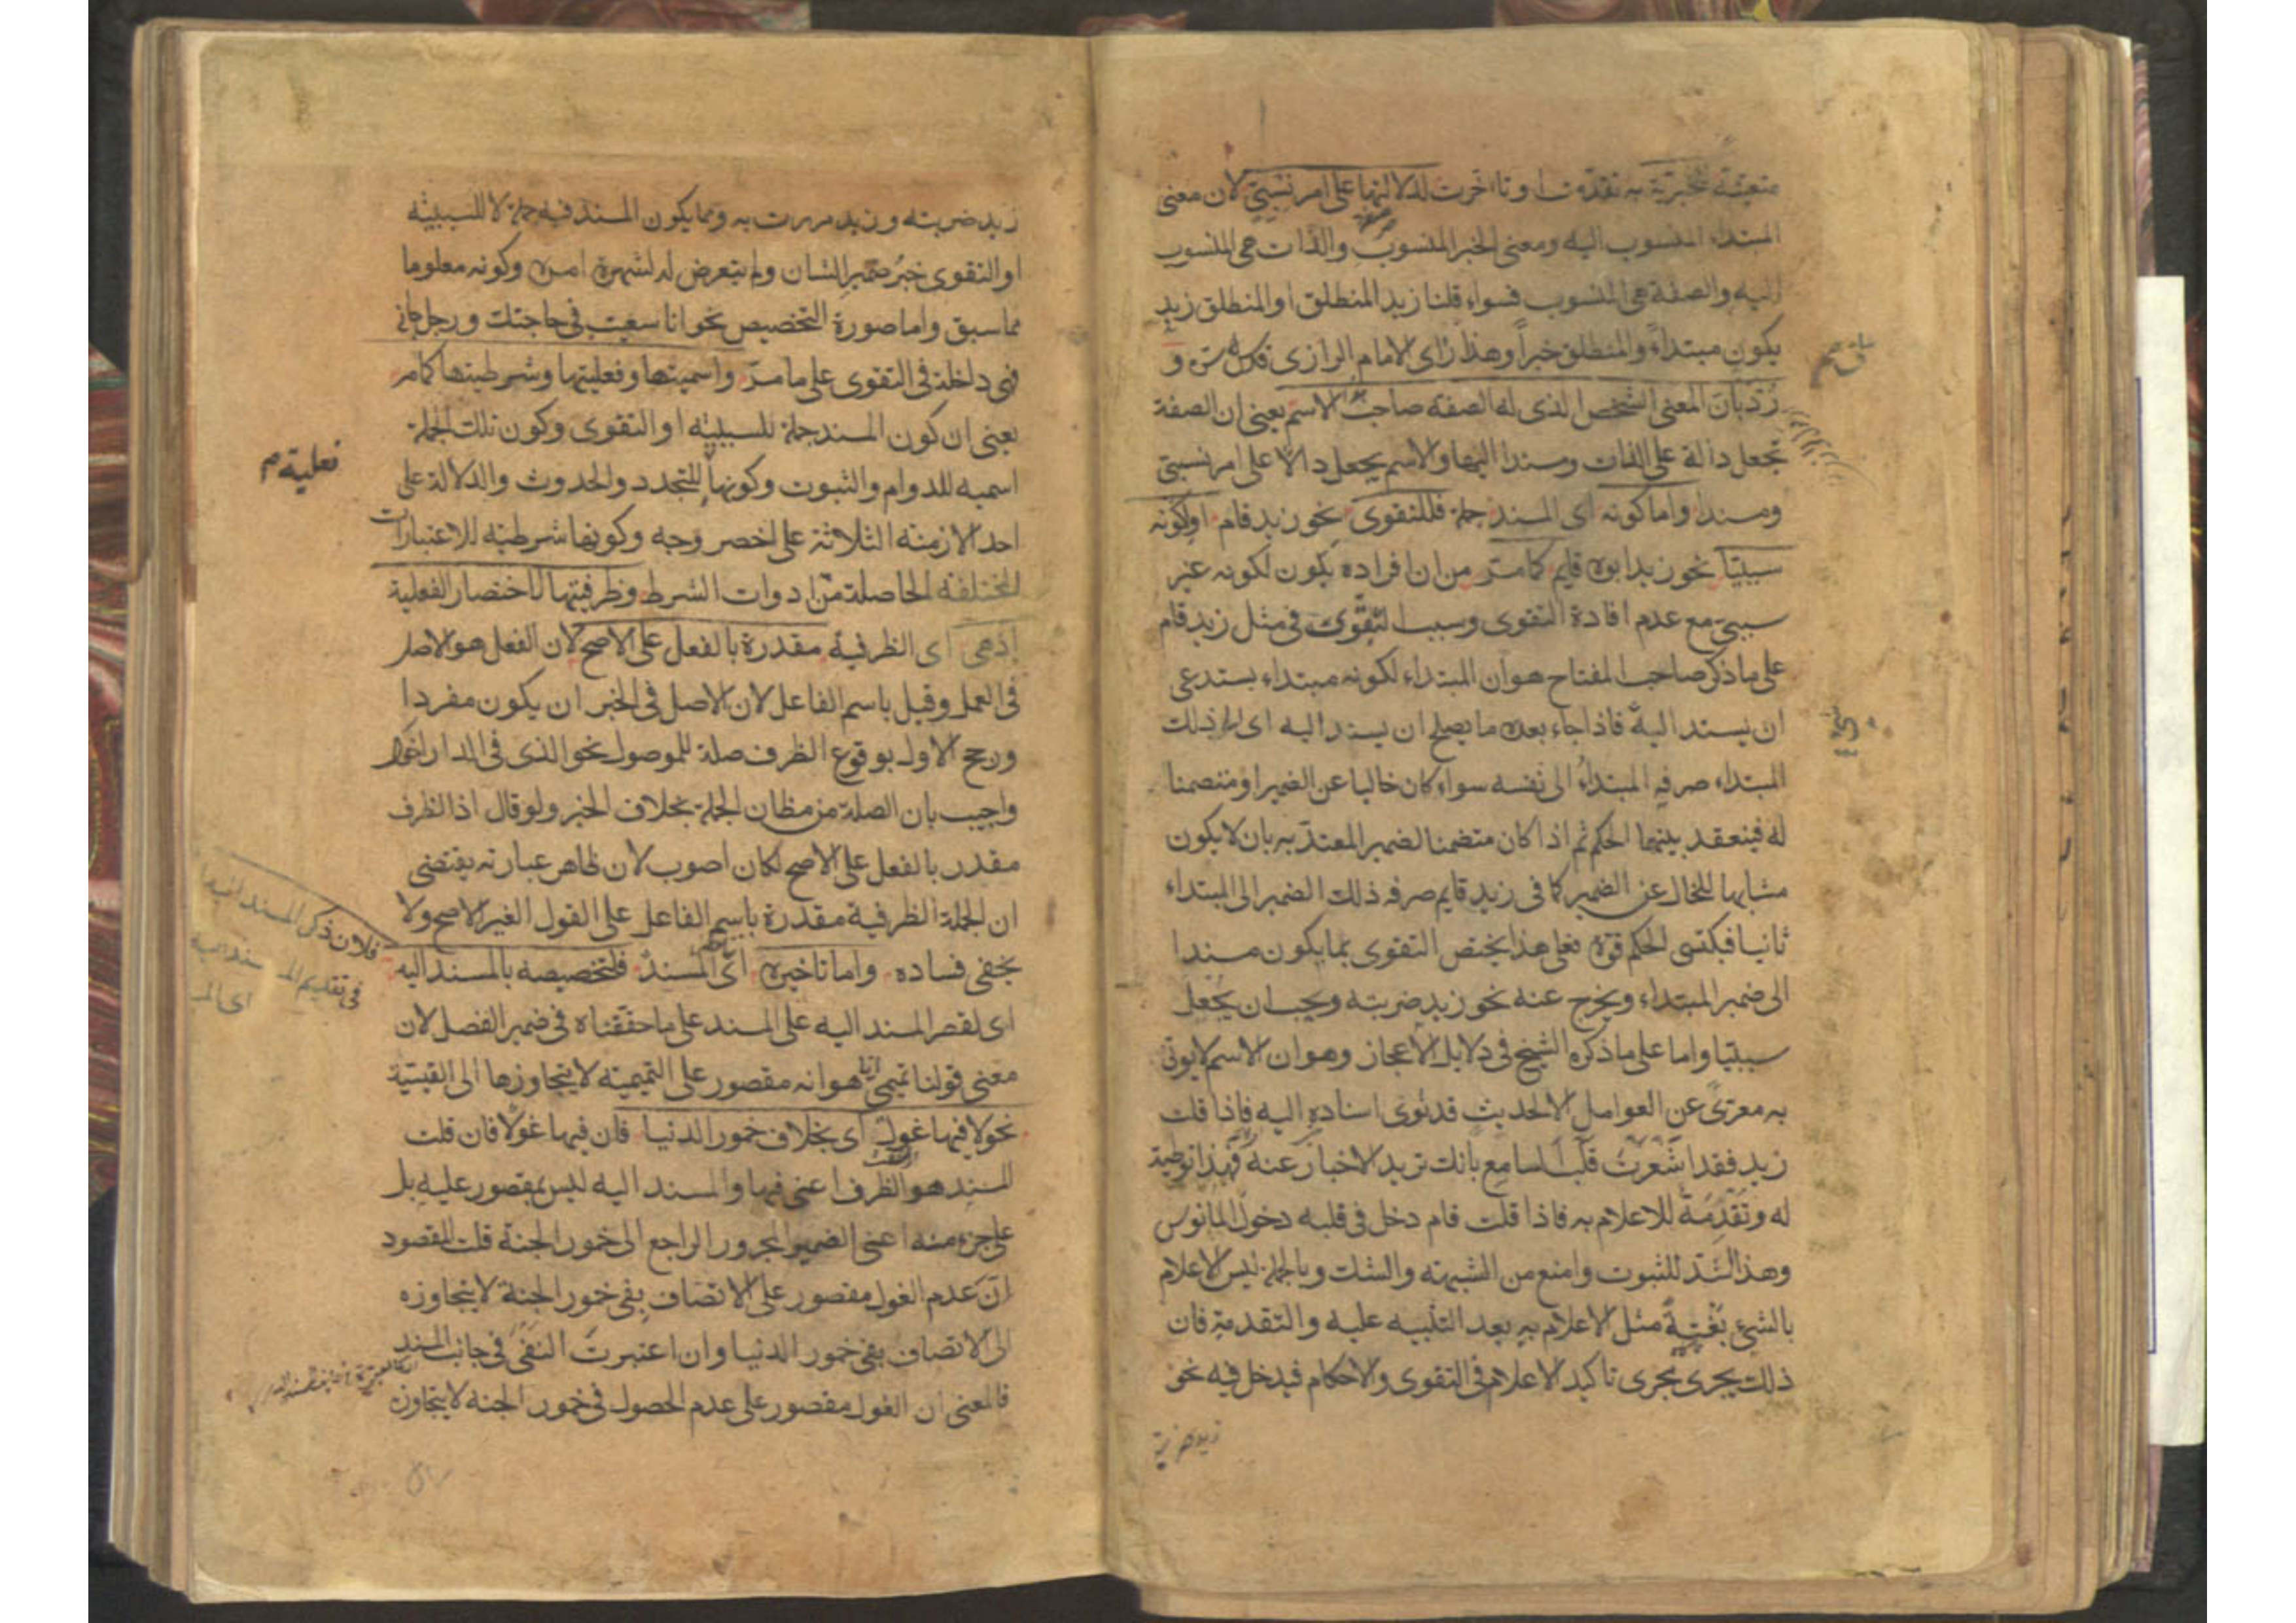 متعينة للخبرية به تقدمت او تاخرت لدلالتها على امر نسبتى لان معنى
المبتداء المنسوب اليه ومعنى الخبر المنسوب والذات هى المنسوب
اليه والصفة هى المنسوب فسواء قلنا زيد المنطلق او المنطلق زيد
يكون مبتداءً والمنطلق خبراً وهذا راى الامام الرازى قدس سره و
رُدّ بان المعنى الشخص الذى له الصفة صاحب الاسم يعنى ان الصفة
تجعل دالة على الذات ومسندا اليها والاسم يجعل دالّا على امر نسبتى
ومسندا واما كونه اى المسند جملة فللتقوى نحو زيد قام او لكونه
سببيّا نحو زيد ابوه قايم كما مر من ان افراده يكون لكونه غير
سببىّ مع عدم افادة التقوى وسبب التقوى فى مثل زيد قام
على ما ذكر صاحب المفتاح هو ان المبتداء لكونه مبتداء يستدعى
ان يسند اليه فاذا جاء بعده ما يصلح ان يسند اليه اى الى ذلك
المبتداء صرفه المبتداءُ الى نفسه سواء كان خاليا عن الضمير او متضمنا
له فينعقد بينهما الحكم ثم اذا كان متضمنا لضمير المعتدّ به بان لا يكون
مشابها للخال عن الضمير كما فى زيد قايم صرفه ذلك الضمير الى المبتداء
ثانيا فيكتسى الحكم قوة فعلى هذا يختص التقوى بما يكون مسندا
الى ضمير المبتداء ويخرج عنه نحو زيد ضربته ويجب ان يُجعل
سببيّا واما على ما ذكره الشيخ فى دلايل الاعجاز وهو ان الاسم لا يوتى
به معرّىً عن العوامل الا لحديث قد نُوِىَ اسناده اليه فاذا قلت
زيد فقد اشعرت قلب السامع بانك تريد الاخبار عنه فهذا توطية
له وتقدمة للاعلام به فاذا قلت قام دخل فى قلبه دخول المانوس
وهذا اشد للثبوت وامنع من الشبهته والشك وبالجملة ليس الاعلام
بالشىء بغتةً مثل الاعلام به بعد التنبيه عليه والتقدمة فان
ذلك يجرى مجرى تاكيد الاعلام فى التقوى والاحكام فيدخل فيه نحو
زيد ضربته
زيد ضربته وزيد مررت به ومما يكون المسند فيه جملة لا للسببيّه
او التقوى خبرُ ضمير الشان ولم يتعرض له لشهرة امره وكونه معلوما
مما سبق واما صورة التخصيص نحو انا سعيت فى حاجتك ورجل جاءنى
فهى داخلة فى التقوى على ما مرّ واسميتها وفعليتها وشرطيتها كما مر
يعنى ان كون المسند جملة للسببيّه او التقوى وكون تلك الجملة
فعلية م
اسميه للدوام والثبوت وكونها للتجدد والحدوث والدلالة على
احد الازمنه الثلاثة على اخصر وجه وكونها شرطيّه للاعتبارات
المختلفة الحاصلة من ادوات الشرط وظرفيتها لاختصار الفعلية
اذ هى اى الظرفية مقدرة بالفعل على الاصح لان الفعل هو الاصل
فى العمل وقيل باسم الفاعل لان الاصل فى الخبر ان يكون مفردا
ورجح الاول بوقوع الظرف صلة للموصول نحو الذى فى الدار اخوك
واجيب بان الصلة من مظان الجملة بخلاف الخبر ولو قال اذ الظرف
مقدر بالفعل على الاصح لكان اصوب لان ظاهر عبارته يقتضى
ان الجملة الظرفية مقدرة باسم الفاعل على القول الغير الاصح ولا
يخفى فساده واما تاخيره اى المسند فلتخصيصه بالمسند اليه
فلان ذكر المسند
فى تقديم
اى لقصر المسند اليه على المسند على ما حققناه فى ضمير الفصل لان
معنى قولنا تميمى انا هو انه مقصور على التميميّه لا يتجاوزها الى القيسيّة
نحو لا فيها غول اى بخلاف خمور الدنيا فان فيها غولا فان قلت
المسند هو الظرف اعنى فيها والمسند اليه ليس بمقصور عليه بل
على جزء منه اعنى الضمير المجرور الراجع الى خمور الجنة قلت المقصود
ان عدم الغول مقصور على الاتصاف بفى خمور الجنة لا يتجاوزه
الى الاتصاف بفى خمور الدنيا وان اعتبرت النفى فى جانب المسند
فالمعنى ان الغول مقصور على عدم الحصول فى خمور الجنه لا يتجاوزه